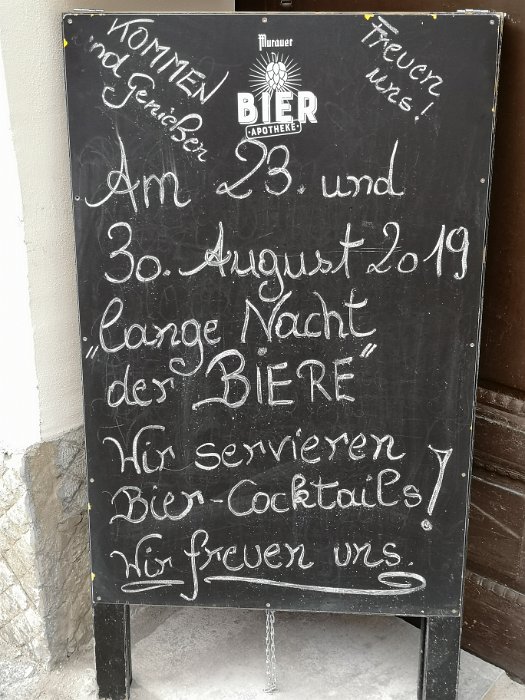 KOMMEN
und Genießen
Freuen
uns!
Murauer
BIER
APOTHEKE
Am 23. und
30. August 2019
„lange Nacht
der BIERE"
Wir servieren
Bier-Cocktails!
Wir freuen uns.